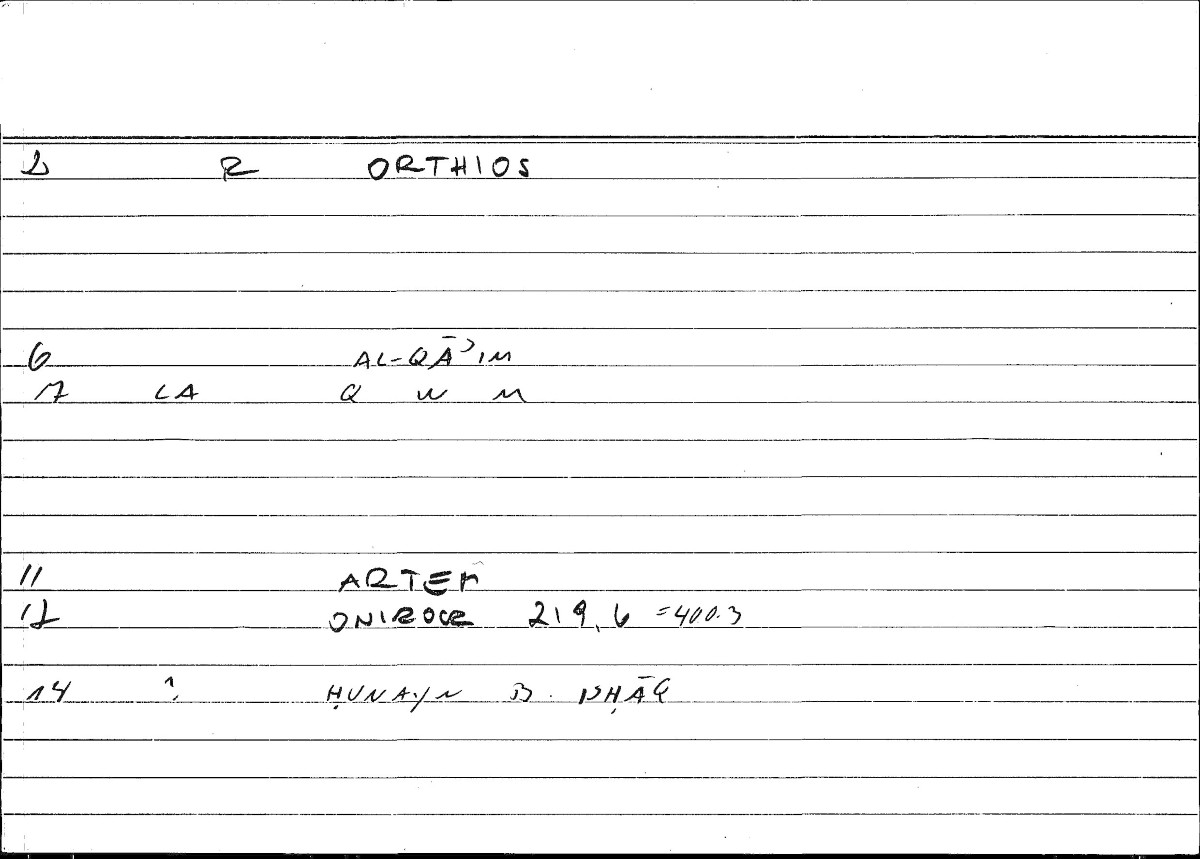 2 R ORTHIOS
6 AL-QĀʾIM
17 LA Q W M
11 ARTEM
12 ONIROCR 219,6 =400.3
14 ḤUNAYN B. ISḤĀQ